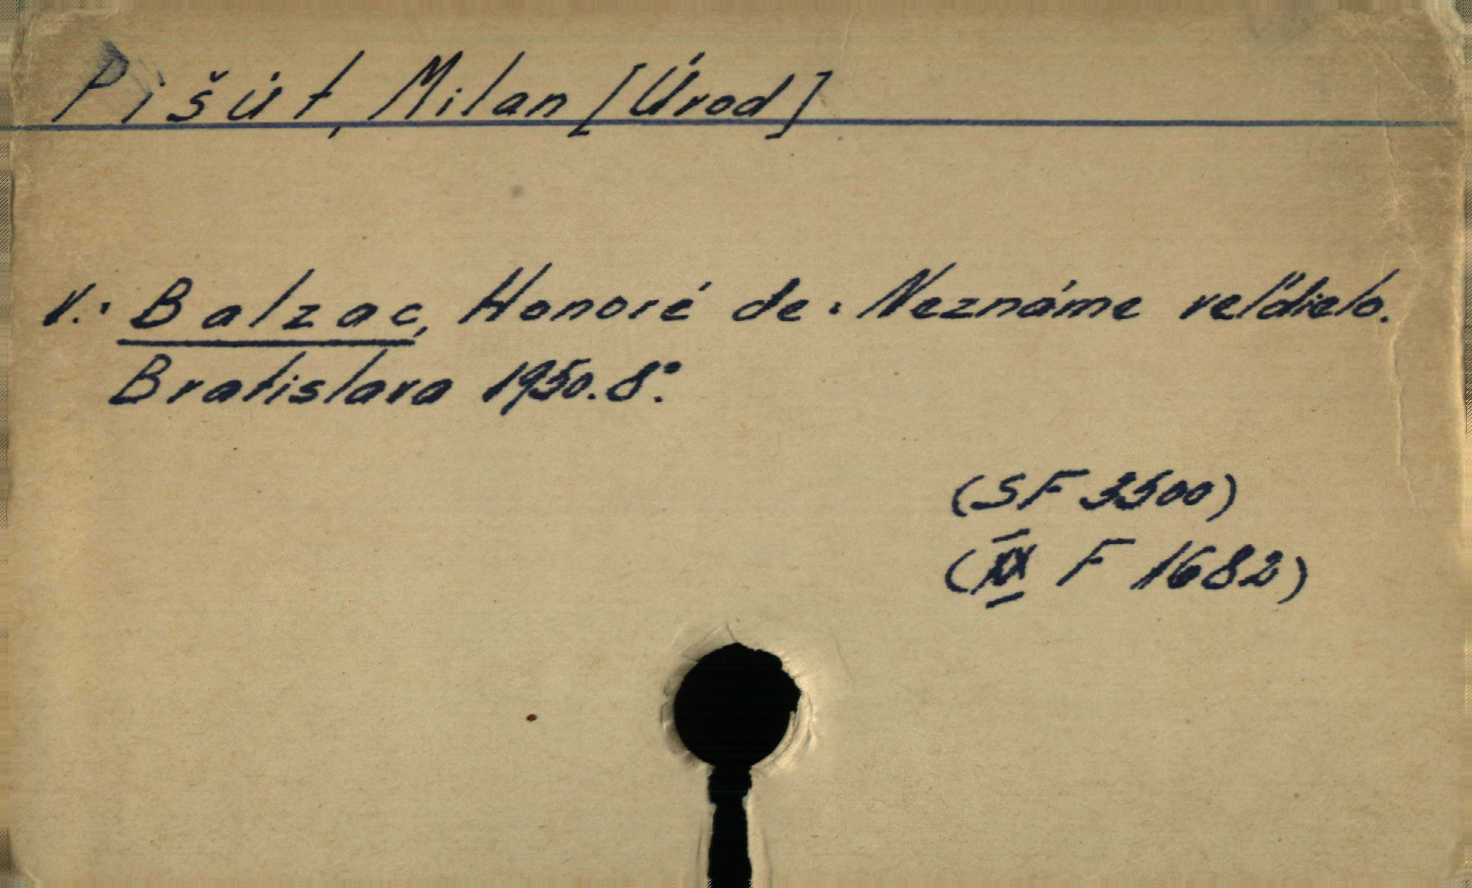 Pišút, Milan [Úvod]
V.: Balzac, Honoré de: Neznáme veľdielo.
Bratislava 1950. 8°.
(SF 3500)
(XX F 1682)